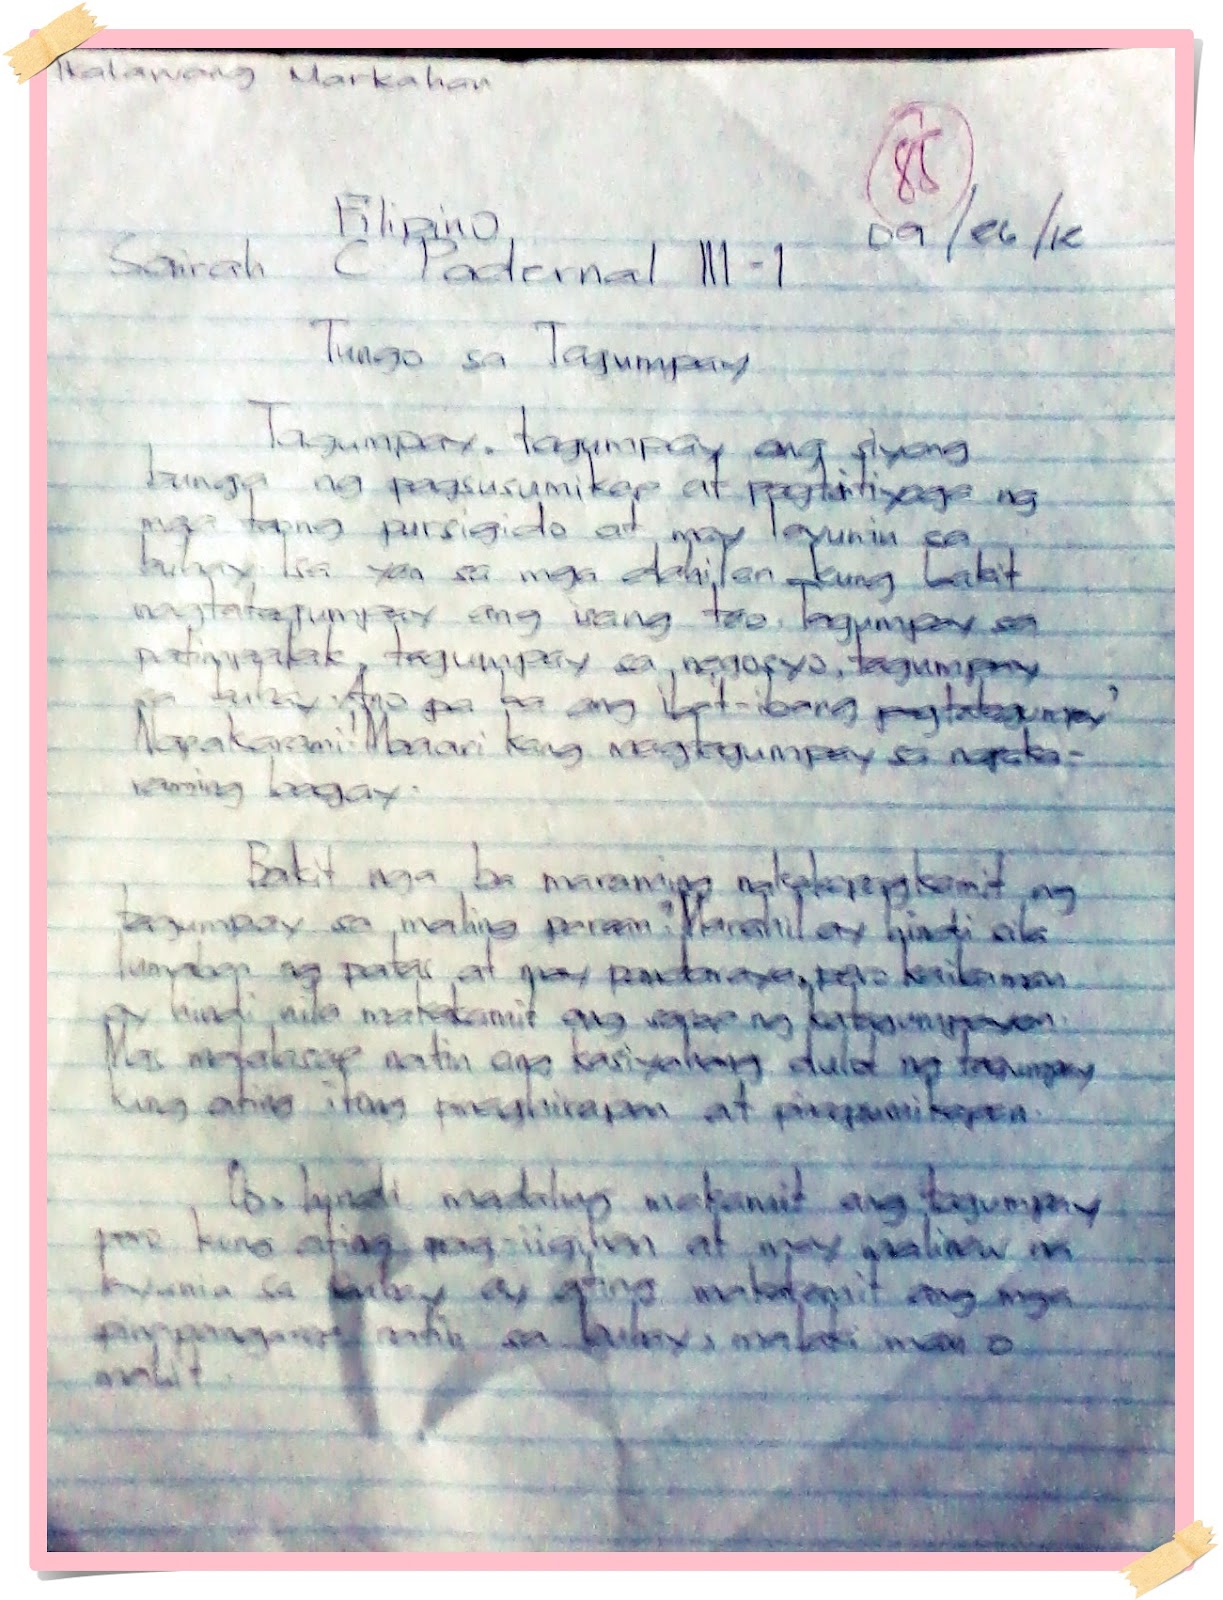 Ikalawang Markahan
85
Filipino
09/26/12
Sairah C Padernal III-1
Tungo sa Tagumpay
Tagumpay, tagumpay ang siyang
bunga ng pagsusumikap at pagtitiyaga ng
mga taong pursigido at may layunin sa
buhay. Isa yan sa mga dahilan kung bakit
nagtatagumpay ang isang tao. Tagumpay sa
patimpalak, tagumpay sa negosyo, tagumpay
sa buhay. Ano pa ba ang ibat-ibang pagtatagumpay?
Napakarami! Maaari kang magtagumpay sa napaka-
raming bagay.
Bakit nga ba maraming nakakapagkamit ng
tagumpay sa maling paraan? Marahil ay hindi sila
lumaban ng patas at may pandaraya, pero kailanman
ay hindi nila makakamit ang sarap ng katagumpayan.
Mas malalasap natin ang kasiyahang dulot ng tagumpay
kung ating itong pinaghirapan at pinagsumikapan.
Oo, hindi madaling makamit ang tagumpay
pero kung ating pag-iigihan at may malinaw na
sa buhay ay ating makakamit ang mga
natin sa buhay, malaki man o
maliit.